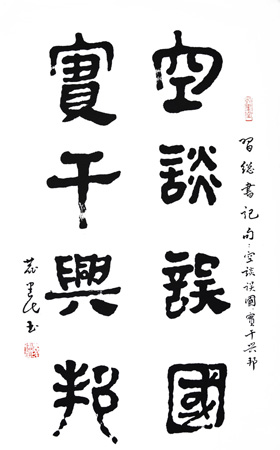 習總書記句：空談誤國實干兴邦
空談誤國
實干興邦